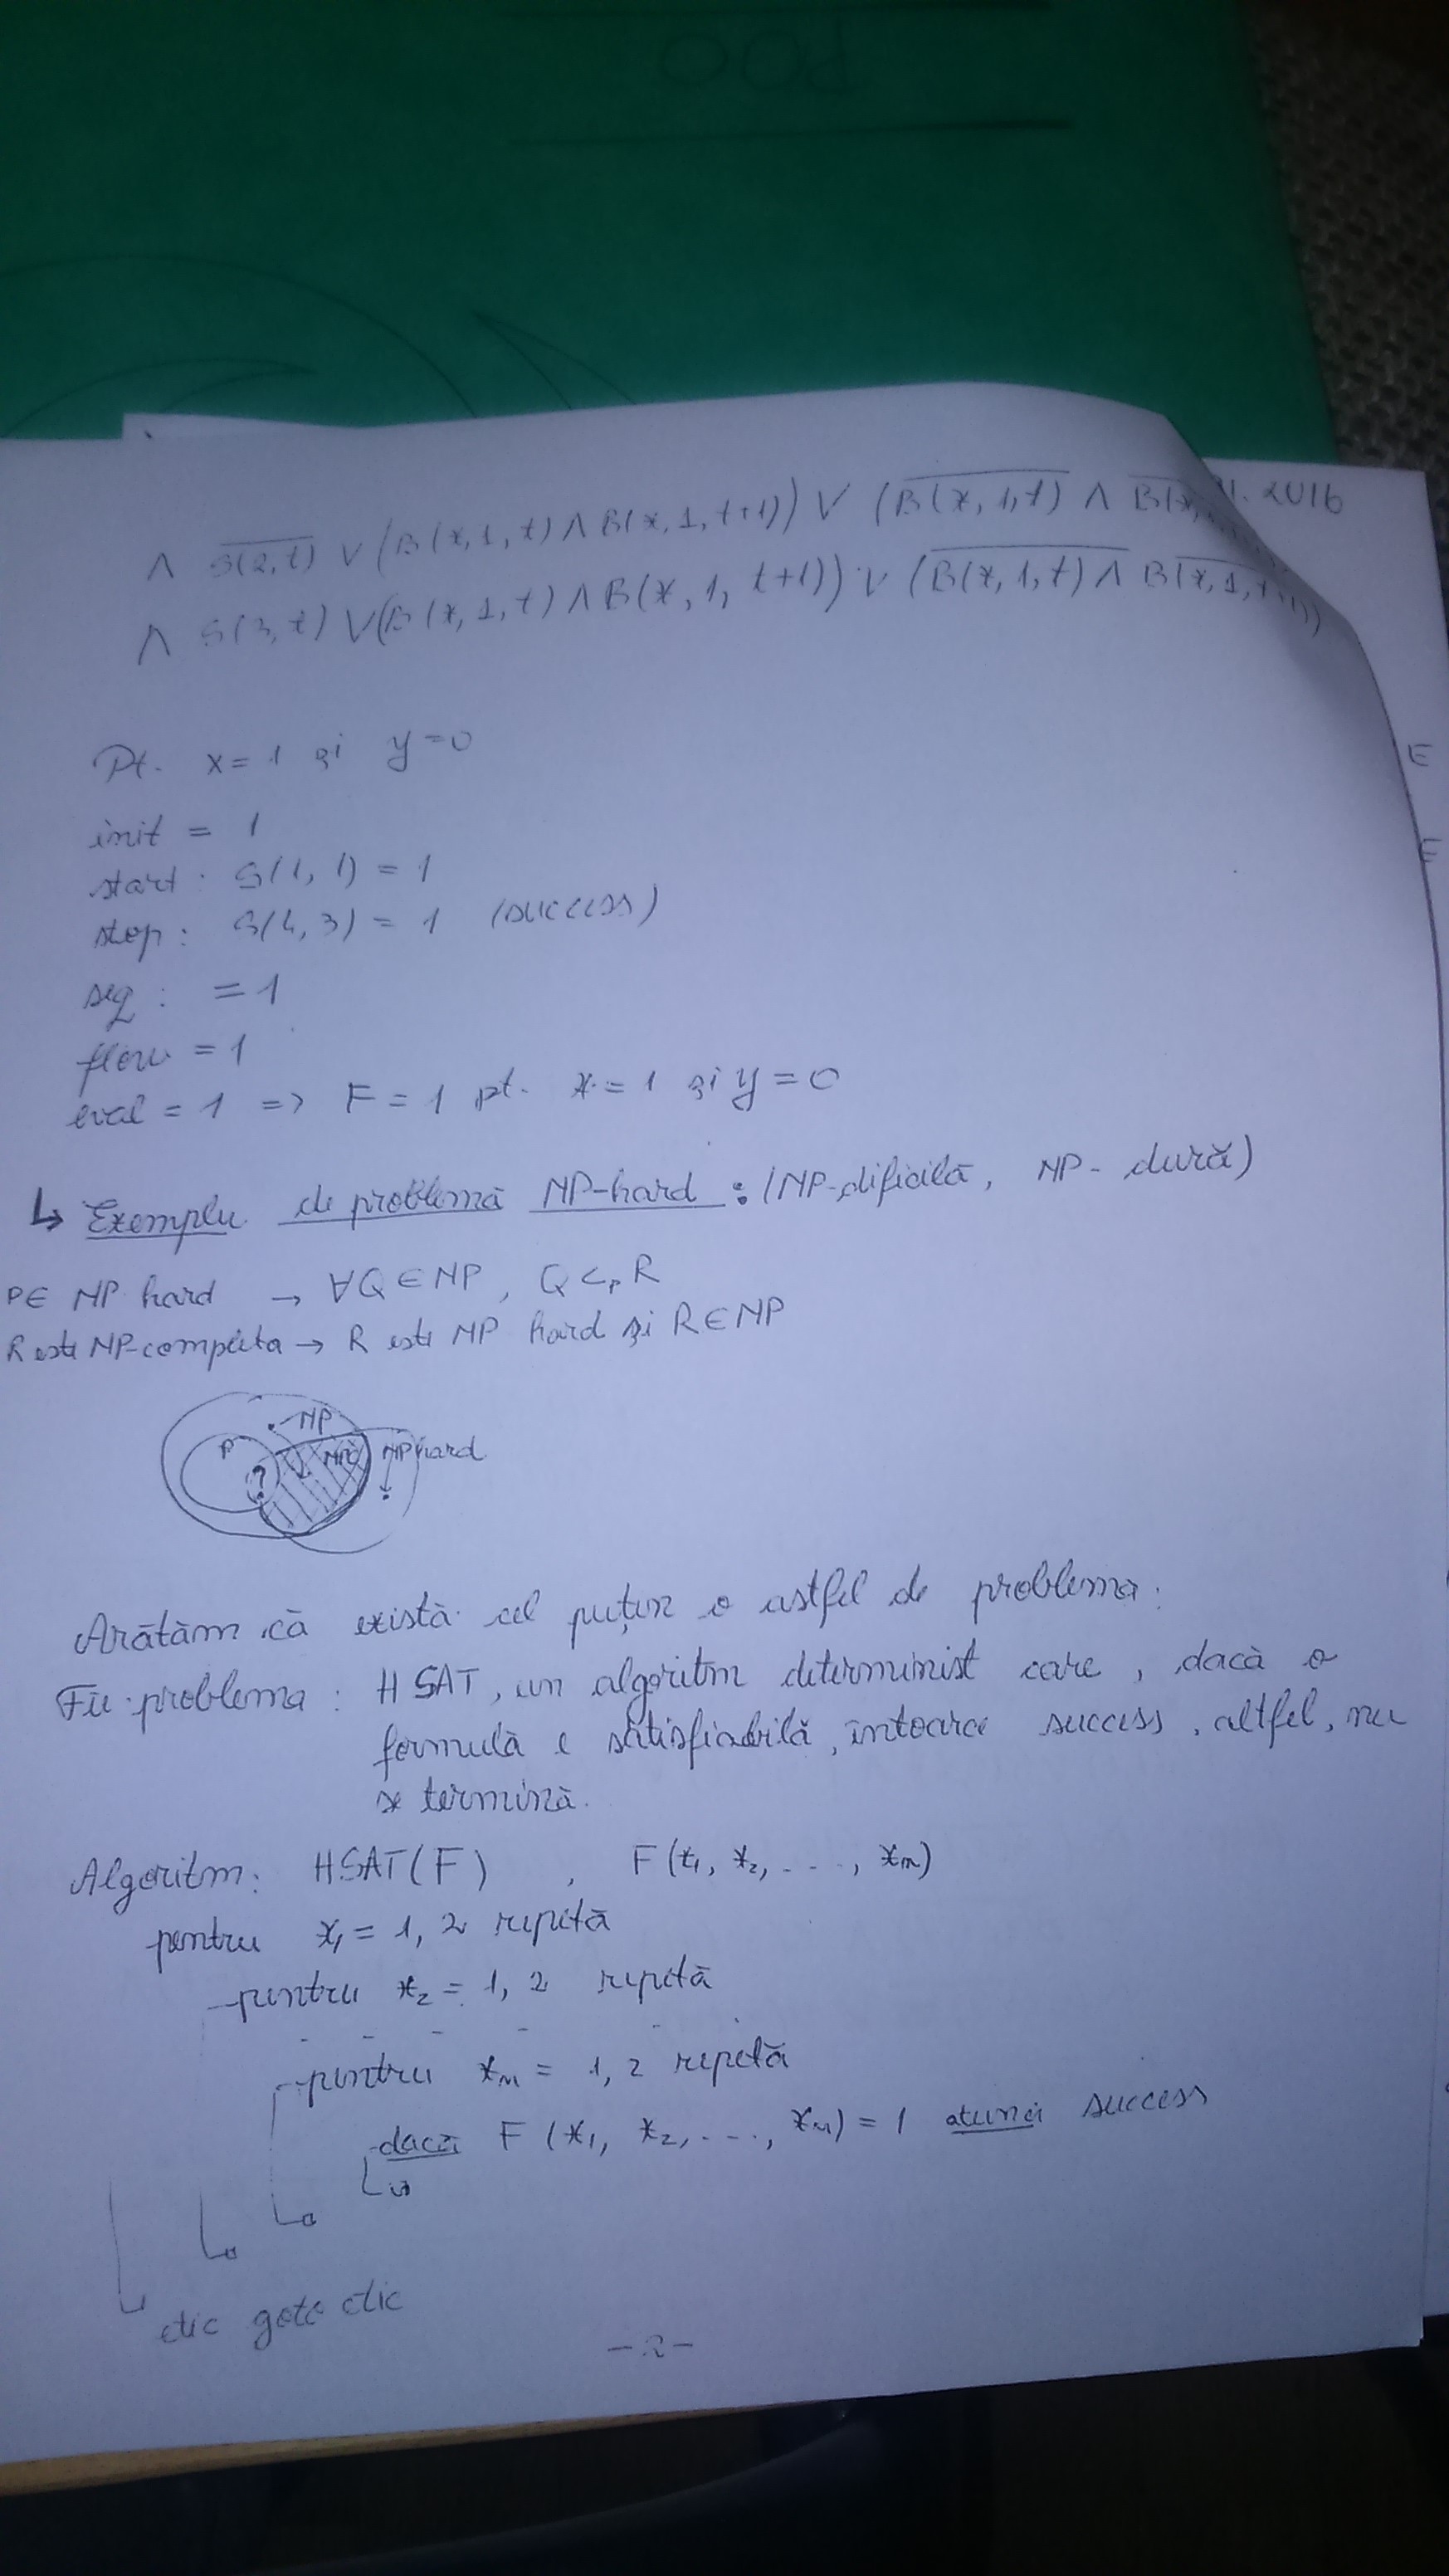 POO
11. 2016
∧ S̅(̅2̅,̅t̅)̅ ∨ (B(x,1,t) ∧ B(x,1,t+1)) ∨ (B̅(̅x̅,̅1̅,̅t̅)̅ ∧ B̅(̅x̅,̅
∧ S(3,t) ∨ (B(x,1,t) ∧ B(x,1,t+1)) ∨ (B̅(̅x̅,̅1̅,̅t̅)̅ ∧ B̅(̅x̅,̅1̅,̅t̅+̅1̅)̅)
Pt. x=1 și y=0
init = 1
start: S(1,1) = 1
stop: S(4,3) = 1 (success)
seg: =1
flow =1
eval = 1 => F = 1 pt. x = 1 și y = 0
↳ Exemplu de problemă NP-hard: (NP-dificilă, NP-dură)
P∈ NP hard → ∀Q∈NP, Q <p R
R este NP-completa → R este NP hard și R∈NP
NP
P
NPC
NP hard
?
Arătăm că există cel puțin o astfel de problema:
Fie problema: HSAT, un algoritm determinist care, dacă o
formulă e satisfiabilă, întoarce success, altfel, nu
se termină.
Algoritm: HSAT(F), F(x₁, x₂, ..., xₙ)
pentru x₁ = 1, 2 repetă
pentru x₂ = 1, 2 repetă
- - - - -
pentru xₙ = 1, 2 repetă
dacă F (x₁, x₂, ..., xₙ) = 1 atunci success
etic goto etic
- 2 -
E
E